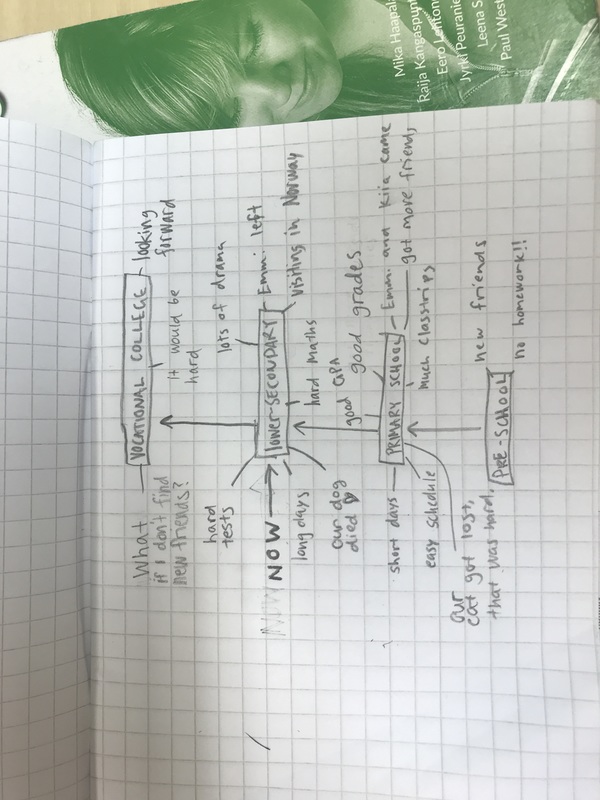 Mika Haapala
Raija Kangaspun
Eero Lehtone
Jyrki Peuranie
Leena S
Paul West
VOCATIONAL COLLEGE
looking
forward
it would be
hard
What
if I don't find
new friends?
lots of drama
hard
tests
NOW
NOW
lower-SECONDARY
Emmi left
Visiting in Norway
hard maths
long days
our dog
died
good GPA
good grades
PRIMARY SCHOOL
Emmi and Kiia came
got more friends
Much classtrips
short days
easy schedule
our
cat got lost,
that was hard.
PRE-SCHOOL
new friends
no homework!!